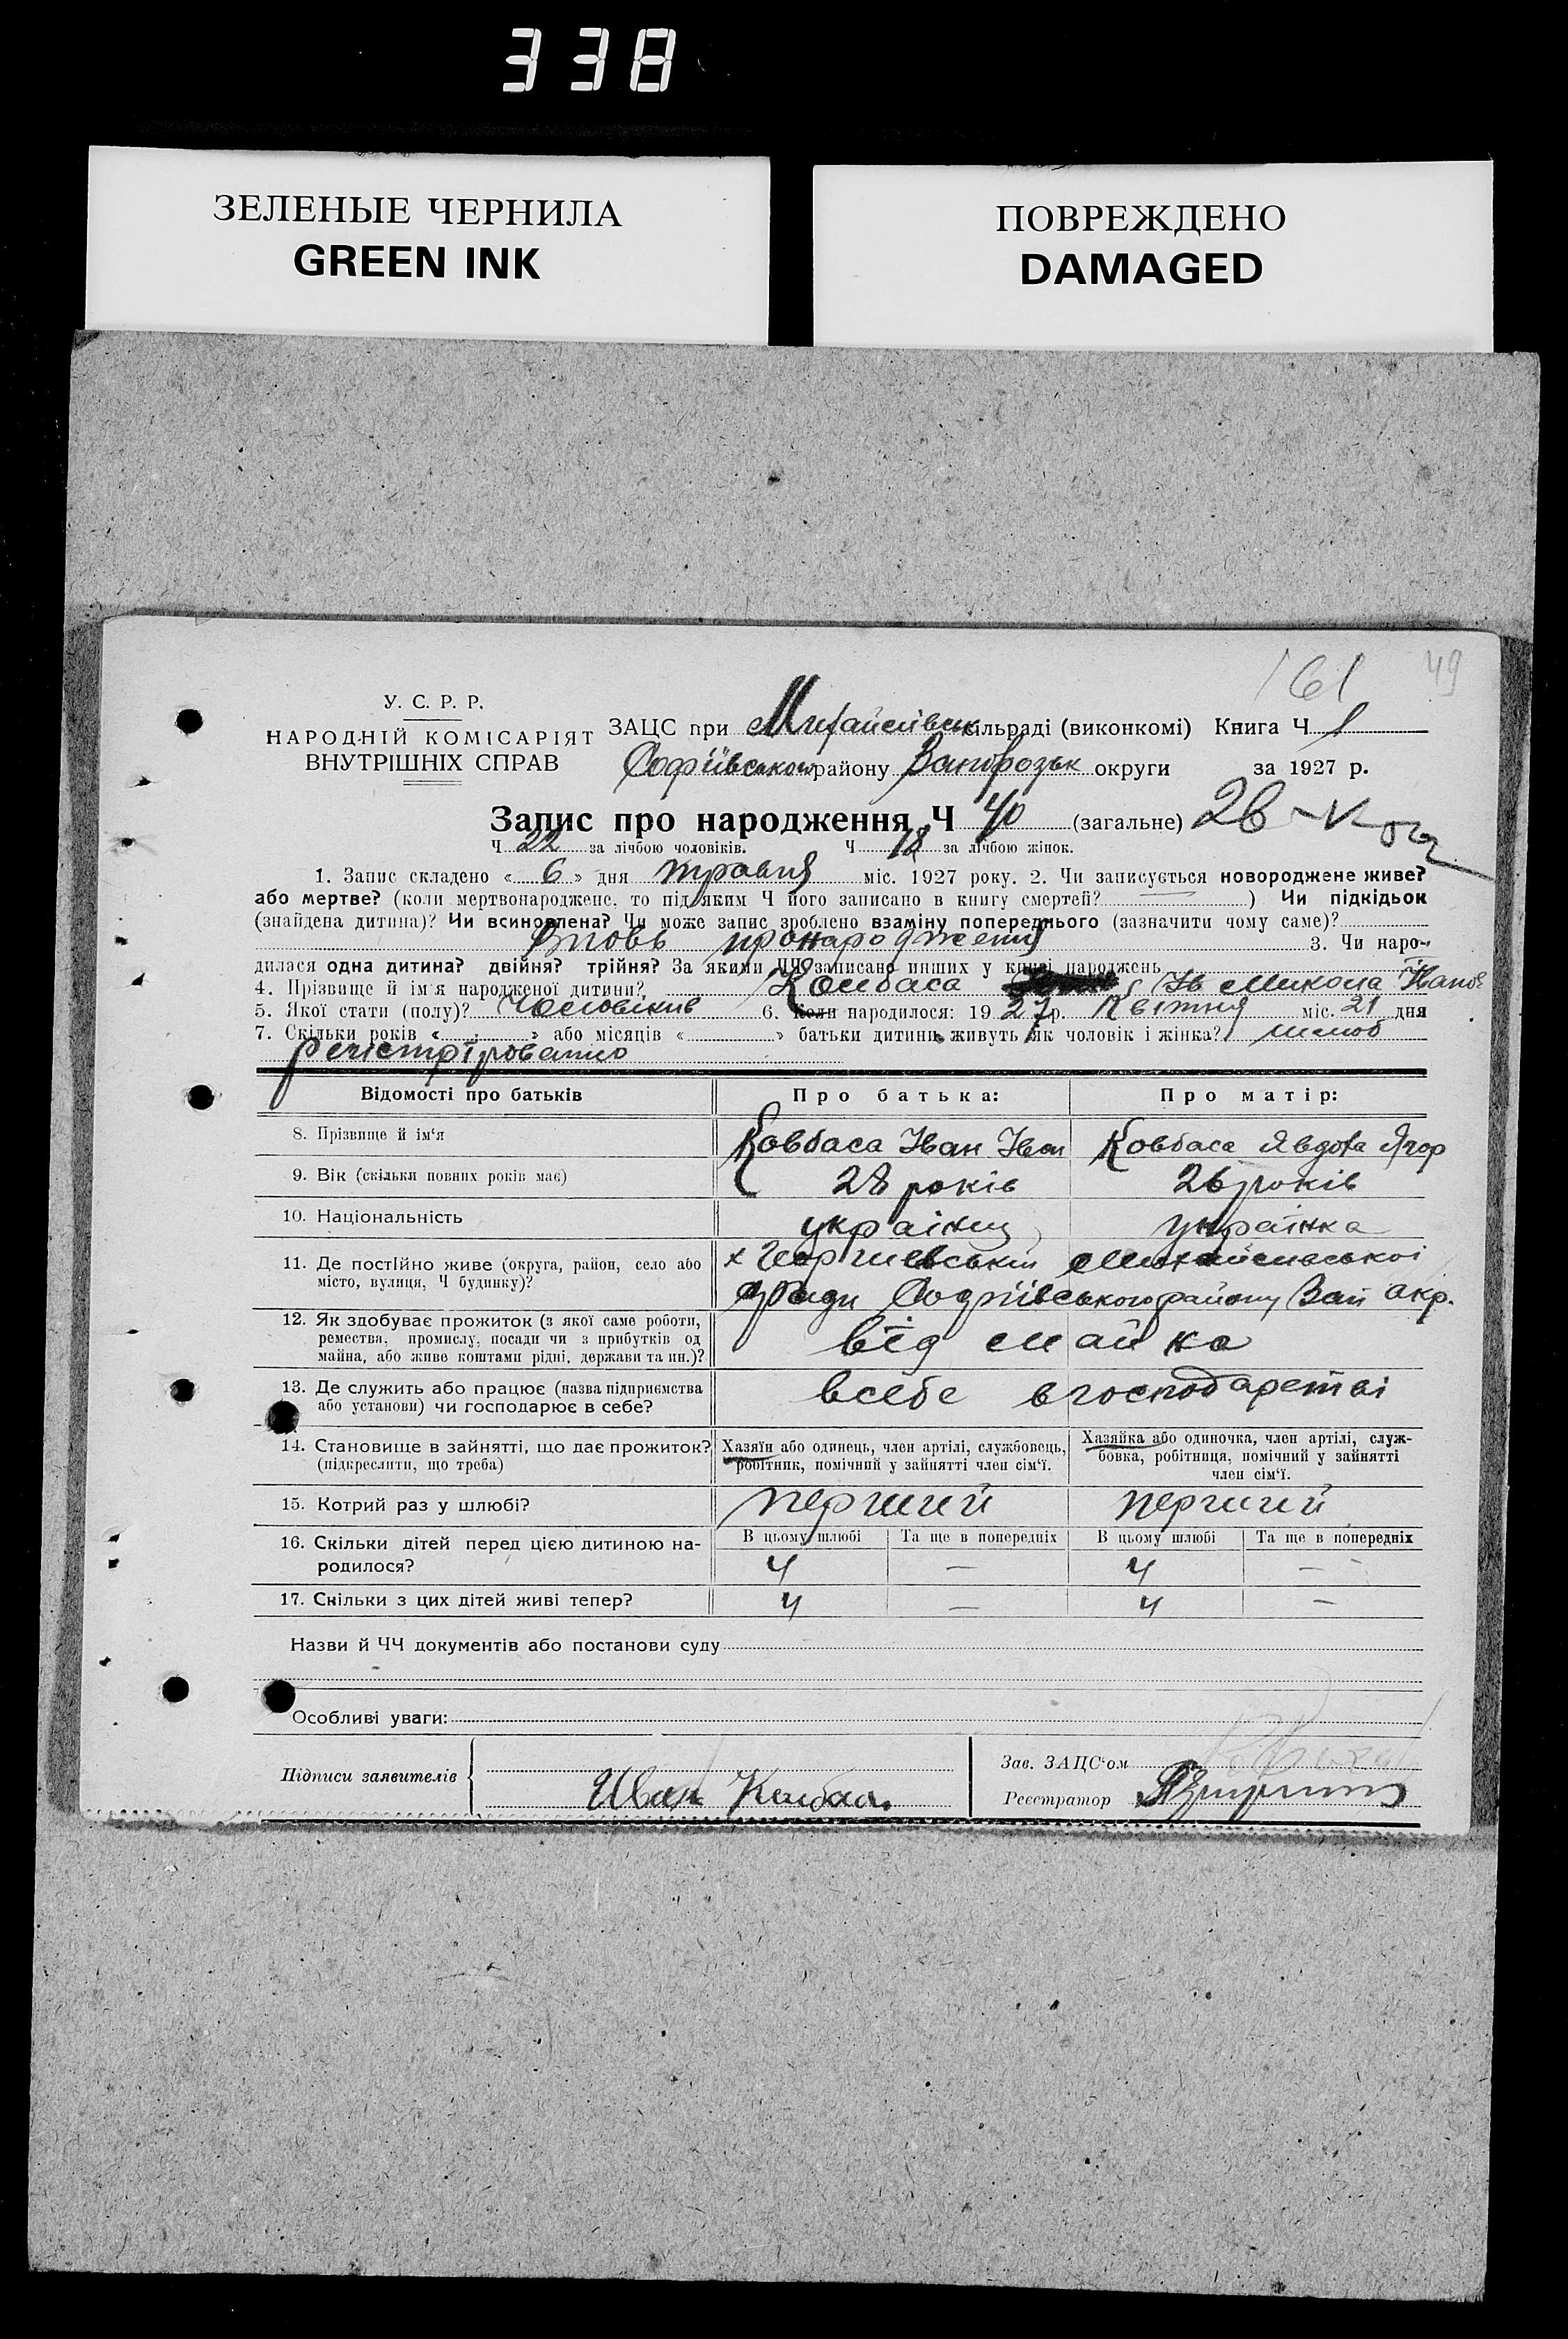 338
ЗЕЛЕНЫЕ ЧЕРНИЛА
GREEN INK
ПОВРЕЖДЕНО
DAMAGED
161 49
У. С. Р. Р.
НАРОДНІЙ КОМІСАРІЯТ
ВНУТРІШНІХ СПРАВ
ЗАЦС при Михайлівськ сільраді (виконкомі) Книга Ч 1
Софіївськом району Запорозьк округи за 1927 р.
Запис про народження Ч 40 (загальне)
Ч 22 за лічбою чоловіків. Ч 18 за лічбою жінок.
1. Запис складено « 6 » дня травня міс. 1927 року. 2. Чи записується новороджене живе?
або мертве? (коли мертвонароджене, то під яким Ч його записано в книгу смертей? —) Чи підкідьок
(знайдена дитина)? Чи всиновлена? Чи може запис зроблено взаміну попереднього (зазначити чому саме)?
Вновь пронароджения 3. Чи наро-
дилася одна дитина? двійня? трійня? За якими ЧЧ записано инших у книзі народжень
4. Прізвище й ім'я народженої дитини? Колбаса Ів Микола Іванов
5. Якої стати (полу)? Чоловіків 6. Коли народилося: 1927 р. Квітня міс. 21 дня
7. Скільки років « » або місяців « » батьки дитини живуть як чоловік і жінка? шлюб
регістріровано
Відомості про батьків Про батька: Про матір:
8. Прізвище й ім'я Ковбаса Іван Іван Ковбаса Явдоха Ягор
9. Вік (скільки повних років має) 28 років 26 років
10. Національність украінец украінка
11. Де постІйно живе (округа, район, село або
місто, вулиця, Ч будинку)?
х Георгиевський Михайлівської
с/Ради Софіївського району Зап окр.
12. Як здобуває прожиток (з якої саме роботи,
ремества, промислу, посади чи з прибутків од
майна, або живе коштами рідні, держави та ин.)?
від майна
13. Де служить або працює (назва підприємства
або установи) чи господарює в себе?
всебе вгосподарстві
14. Становище в зайнятті, що дає прожиток?
(підкреслити, що треба)
Хазяїн або одинець, член артілі, службовець,
робітник, помічний у зайнятті член сім'ї.
Хазяйка або одиночка, член артілі, служ-
бовка, робітниця, помічний у зайнятті
член сім'ї.
15. Котрий раз у шлюбі? перший перший
16. Скільки дітей перед цією дитиною на-
родилося?
В цьому шлюбі Та ще в попередніх В цьому шлюбі Та ще в попередніх
4 — 4 —
17. Скільки з цих дітей живі тепер? 4 — 4 —
Назви й ЧЧ документів або постанови суду
Особливі уваги:
Підписи заявителів
Иван Колбаса
Зав. ЗАЦС'ом
Реєстратор